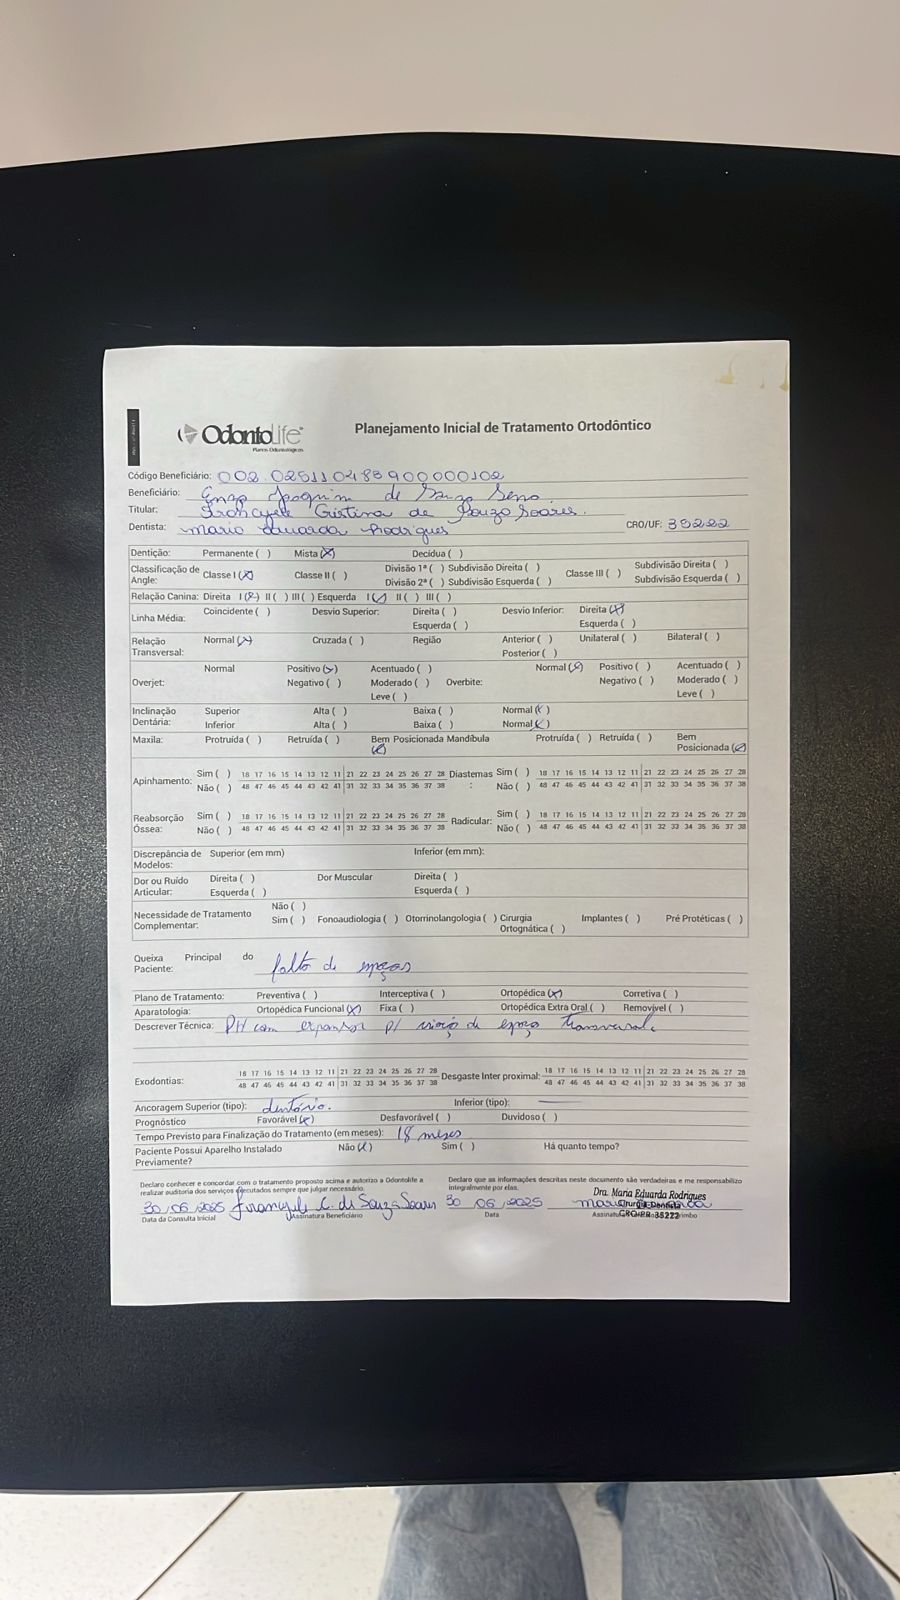 OdontoLife
Planos Odontológicos
Planejamento Inicial de Tratamento Ortodôntico
Código Beneficiário: 002.025110483900000102
Beneficiário: Enzo Joaquim de Souza Sena
Titular: Francyele Cristina de Souza Soares.
Dentista: Maria Eduarda Rodrigues CRO/UF: 35222
Dentição: Permanente ( ) Mista (X) Decídua ( )
Classificação de Angle: Classe I (X) Classe II ( ) Divisão 1ª ( ) Subdivisão Direita ( ) Classe III ( ) Subdivisão Direita ( )
Divisão 2ª ( ) Subdivisão Esquerda ( ) Subdivisão Esquerda ( )
Relação Canina: Direita I (X) II ( ) III ( ) Esquerda I (X) II ( ) III ( )
Linha Média: Coincidente ( ) Desvio Superior: Direita ( ) Desvio Inferior: Direita (X)
Esquerda ( ) Esquerda ( )
Relação Transversal: Normal (X) Cruzada ( ) Região Anterior ( ) Unilateral ( ) Bilateral ( )
Posterior ( )
Overjet: Normal Positivo (X) Acentuado ( ) Overbite: Normal (X) Positivo ( ) Acentuado ( )
Negativo ( ) Moderado ( ) Negativo ( ) Moderado ( )
Leve ( ) Leve ( )
Inclinação Dentária: Superior Alta ( ) Baixa ( ) Normal (X)
Inferior Alta ( ) Baixa ( ) Normal (X)
Maxila: Protruída ( ) Retruída ( ) Bem Posicionada (X) Mandíbula Protruída ( ) Retruída ( ) Bem Posicionada (X)
Apinhamento: Sim ( ) 18 17 16 15 14 13 12 11 21 22 23 24 25 26 27 28 Diastemas: Sim ( ) 18 17 16 15 14 13 12 11 21 22 23 24 25 26 27 28
Não ( ) 48 47 46 45 44 43 42 41 31 32 33 34 35 36 37 38 Não ( ) 48 47 46 45 44 43 42 41 31 32 33 34 35 36 37 38
Reabsorção Óssea: Sim ( ) 18 17 16 15 14 13 12 11 21 22 23 24 25 26 27 28 Radicular: Sim ( ) 18 17 16 15 14 13 12 11 21 22 23 24 25 26 27 28
Não ( ) 48 47 46 45 44 43 42 41 31 32 33 34 35 36 37 38 Não ( ) 48 47 46 45 44 43 42 41 31 32 33 34 35 36 37 38
Discrepância de Modelos: Superior (em mm) Inferior (em mm):
Dor ou Ruído Articular: Direita ( ) Dor Muscular Direita ( )
Esquerda ( ) Esquerda ( )
Necessidade de Tratamento Complementar: Não ( )
Sim ( ) Fonoaudiologia ( ) Otorrinolangologia ( ) Cirurgia Ortognática ( ) Implantes ( ) Pré Protéticas ( )
Queixa Principal do Paciente: falta de espaços
Plano de Tratamento: Preventiva ( ) Interceptiva ( ) Ortopédica (X) Corretiva ( )
Aparatologia: Ortopédica Funcional (X) Fixa ( ) Ortopédica Extra Oral ( ) Removível ( )
Descrever Técnica: PH com expansor p/ de espaço transversal.
Exodontias: 18 17 16 15 14 13 12 11 21 22 23 24 25 26 27 28 Desgaste Inter proximal: 18 17 16 15 14 13 12 11 21 22 23 24 25 26 27 28
48 47 46 45 44 43 42 41 31 32 33 34 35 36 37 38 48 47 46 45 44 43 42 41 31 32 33 34 35 36 37 38
Ancoragem Superior (tipo): dentária. Inferior (tipo):
Prognóstico Favorável (X) Desfavorável ( ) Duvidoso ( )
Tempo Previsto para Finalização do Tratamento (em meses): 18 meses
Paciente Possui Aparelho Instalado Previamente? Não (X) Sim ( ) Há quanto tempo?
Declaro conhecer e concordar com o tratamento proposto acima e autorizo a Odontolife a realizar auditoria dos serviços executados sempre que julgar necessário.
Declaro que as informações descritas neste documento são verdadeiras e me responsabilizo integralmente por elas.
30 06 2025 Francyele C. de Souza Soares 30 06 2025
Dra. Maria Eduarda Rodrigues
Cirurgiã-Dentista
CRO-PR 35222
Data da Consulta Inicial Assinatura Beneficiário Data